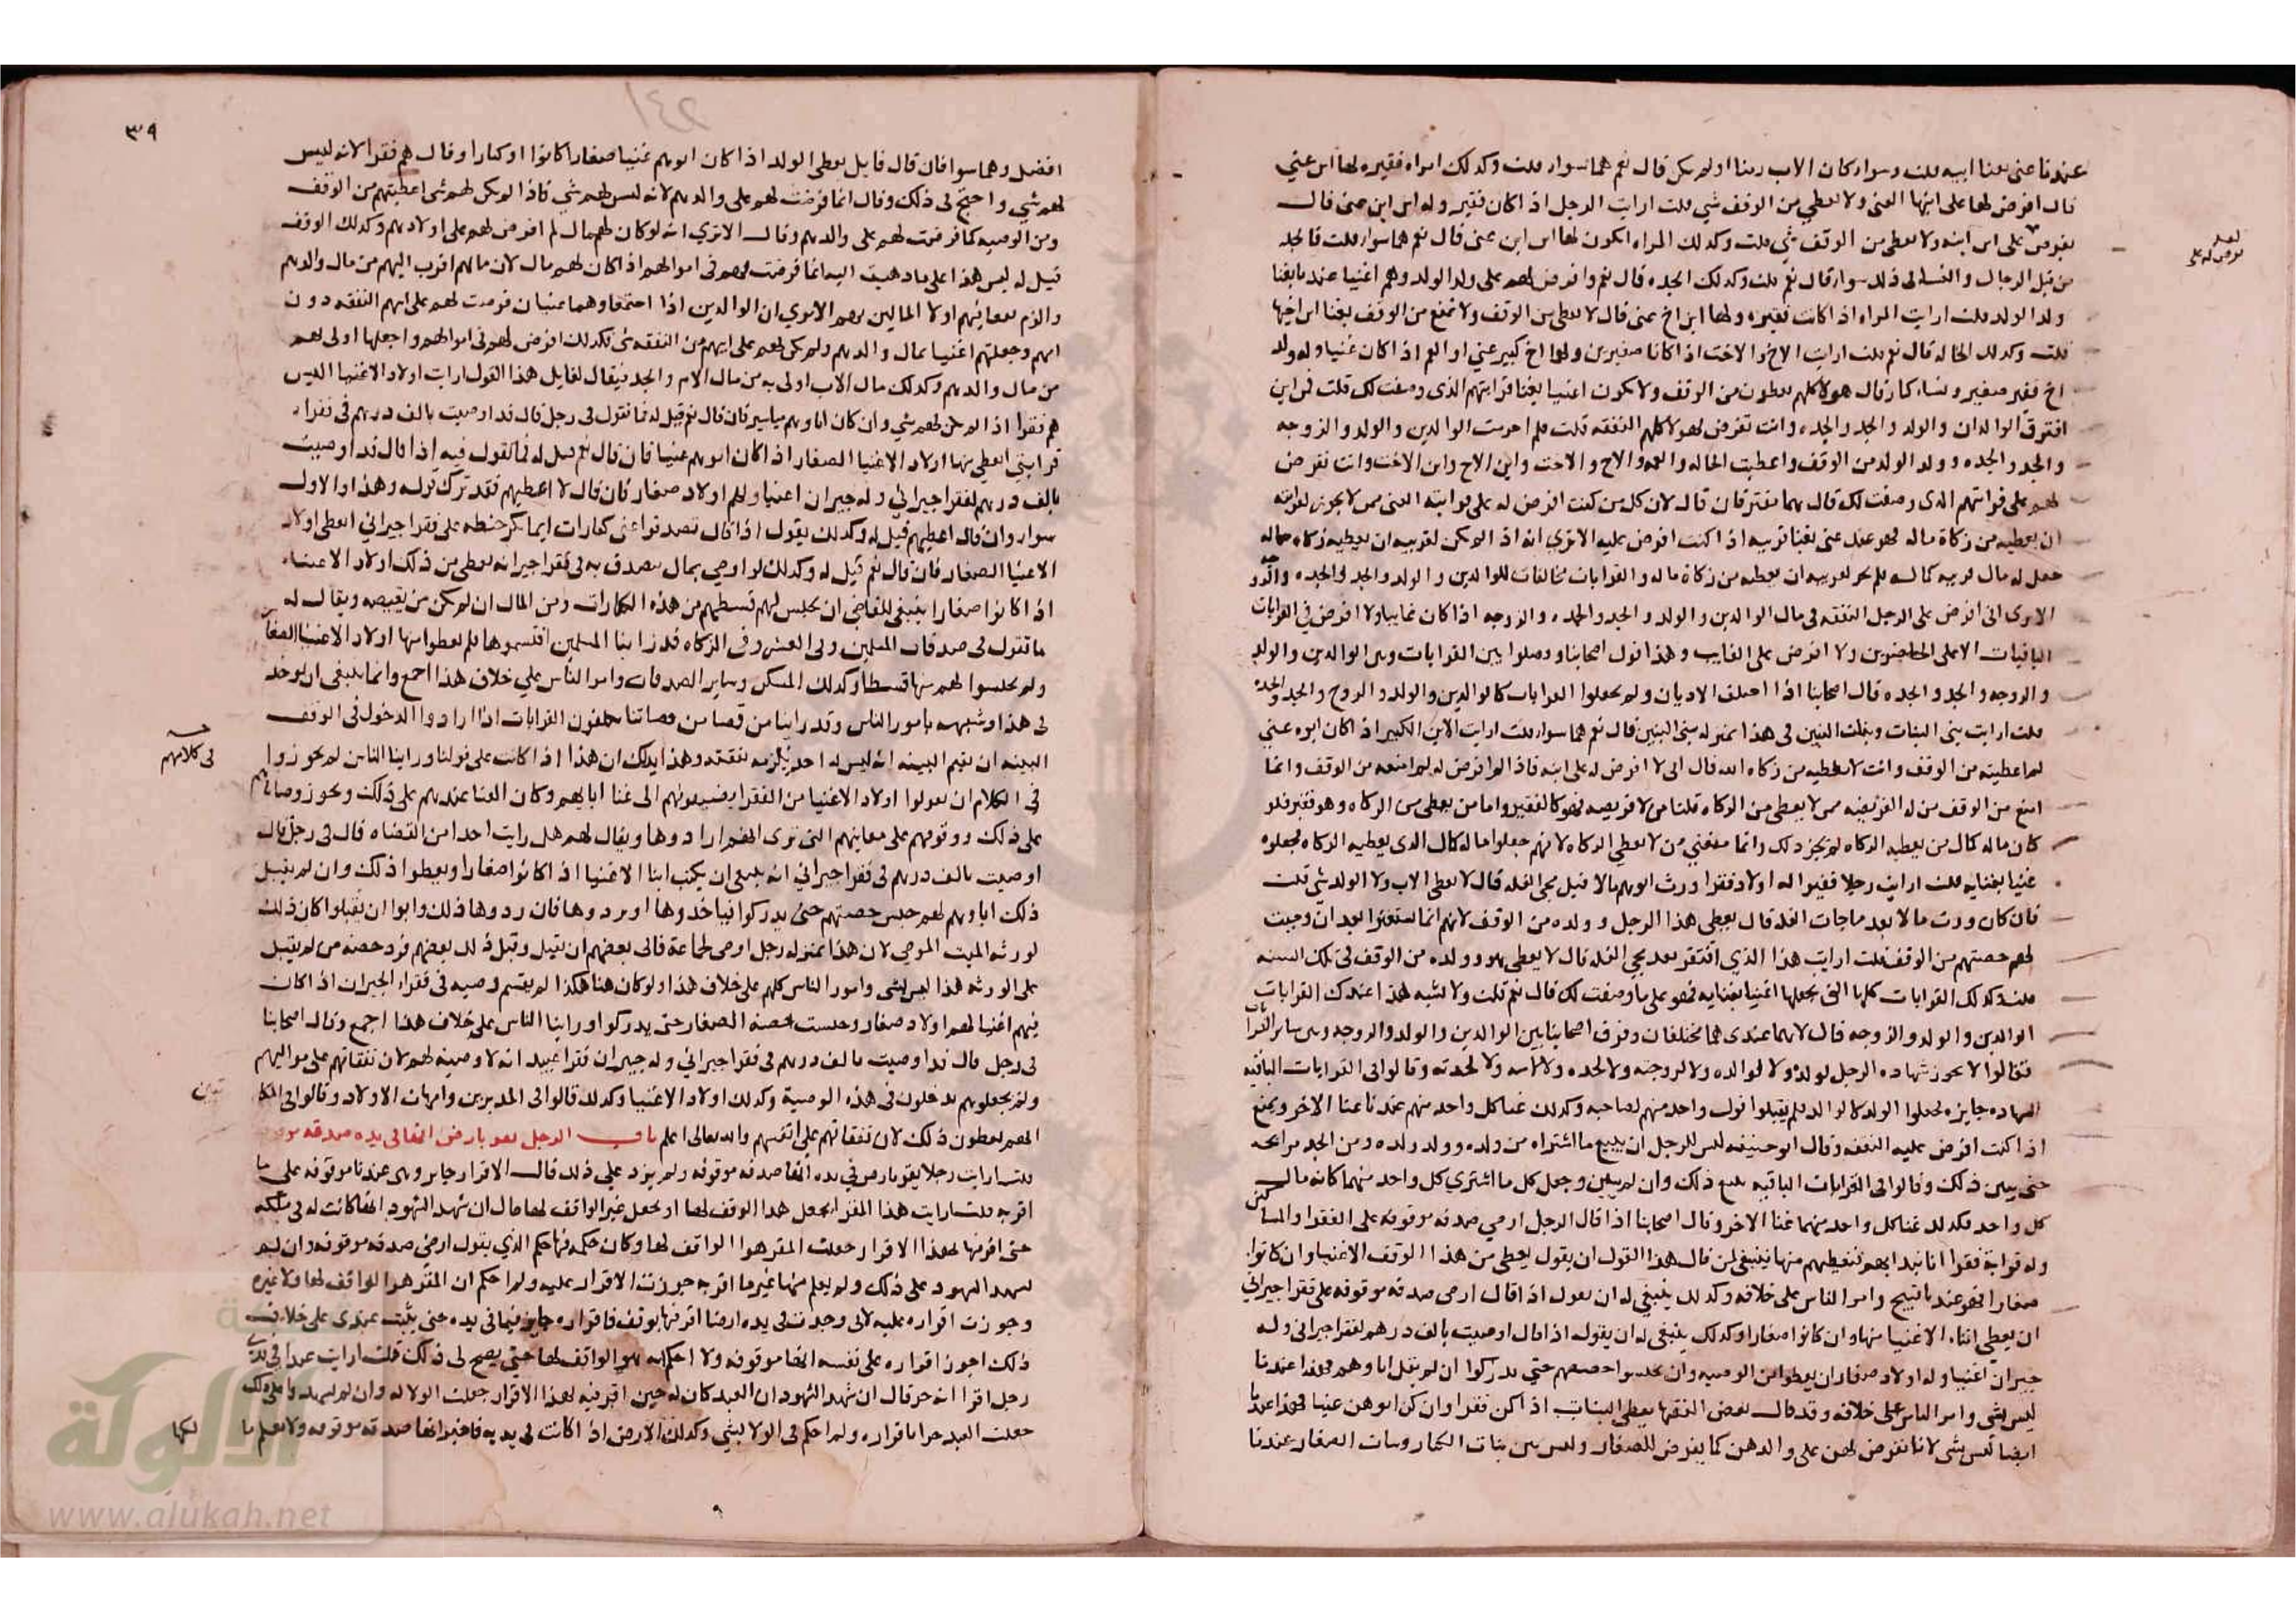 عندنا غني بغنا ابيه قلت وسوا كان الاب زمنا او لم يكن قال نعم هما سوا قلت وكذلك امراه فقيره لها ابن غني
قال افرض لها على ابنها الغني ولا تعطي من الوقف شي قلت ارايت الرجل اذا كان فقير وله ابن ابن غني قال
يفرض على ابن ابنه ولا يعطى من الوقف شي قلت وكذلك المراه يكون لها ابن ابن غني قال نعم هما سوا قلت فالجد
من قبل الرجال والنسا في ذلك سوا قال نعم قلت وكذلك الجده قال نعم وافرض لهم على ولد الولد وهم اغنيا عندنا بغنا
ولد الولد قلت ارايت المراه اذا كانت فقيره ولها ابن اخ غني قال لا تعطى من الوقف ولا تمنع من الوقف بغنا ابن اخيها
قلت وكذلك الخاله قال نعم قلت ارايت الاخ والاخت اذا كانا صغيرين ولهما اخ كبير غني او العم اذا كان غنيا وله ولد
اخ فقير صغير ونساء كبار قال هولا كلهم يعطون من الوقف ولا يكون اغنيا بغنا قرابتهم الذي وصفت لك قلت فمن اين
افترق الوالدان والولد والجد والجده وانت تفرض لهولا كلهم النفقه قلت فلم احرمت الوالدين والولد والزوجه
والجد والجده وولد الولد من الوقف واعطيت الخاله والعمه والاخ والاخت وابن الاخ وابن الاخت وانت تفرض
لهم على قرابتهم الذي وصفت لك قال هما مفترقان قال لان كل من كنت افرض له على قرابته الغني ممن لا يجوز لقرابته
ان يعطيه من زكاة ماله فهو عندي غني بغنا قريبه اذا كنت افرض عليه الا ترى انه اذا لم يكن لقريبه ان يعطيه زكاه ماله
جعل له مال قريبه كماله فلم يجز لقريبه ان يعطيه من زكاة ماله والقرابات مخالفات للوالدين والولد والجد والجده والزوجه
الا ترى اني افرض على الرجل النفقه في مال الوالدين والولد والجد والجده والزوجه اذا كان غايبا ولا افرض في القرابات
الباقيات الا على الحاضرين ولا افرض على الغايب وهذا قول اصحابنا وفصلوا بين القرابات وبين الوالدين والولد
والزوجه والجد والجده قال اصحابنا اذا اختلف الاديان ولم يجعلوا القرابات كالوالدين والولد والزوج والجد والجده
قلت ارايت بني البنات وبنات البنين في هذا بمنزله بني البنين قال نعم هما سوا قلت ارايت الابن الكبير اذا كان ابوه غني
لما عطيته من الوقف وانت لا تعطيه من زكاه ابيه قال اني لا افرض له على ابيه فاذا لم افرض له لم امنعه من الوقف وانما
امنع من الوقف من له الفريضه ممن لا يعطى من الزكاه قلنا من لا فريضه فهو كالفقير واما من يعطى من الزكاه وهو فقير فلو
كان ماله كمال من يعطيه الزكاه لم يجز ذلك وانما معنى من لا يعطى الزكاه لانهم جعلوا ماله كمال الذي يعطيه الزكاه فجعلوه
غنيا بغنايه قلت ارايت رجلا فقيرا له اولاد فقرا ورث ابوهم مالا قبل مجي الغله قال لا يعطى الاب ولا الولد شي قلت
فان كان ورث مالا بعد ما جات الغله قال يعطى هذا الرجل وولده من الوقف لانهم انما استغنوا بعد ان وجبت
لهم حصتهم من الوقف قلت ارايت هذا الذي افتقر بعد مجي الغله قال لا يعطى هو وولده من الوقف في تلك السنه
قلت وكذلك القرابات كلها التي تجعلها اغنيا بغنايه فهو على ما وصفت لك قال نعم قلت ولا تشبه هذا عندك القرابات
الوالدين والولد والزوجه قال لا هما عندي هما مختلفان وفرق اصحابنا بين الوالدين والولد والزوجه وبين ساير القرابات
فقالوا لا يجوز شهاده الرجل لولده ولا لوالده ولا لزوجته ولا لجده ولا لابنه ولا لجدته وقالوا في القرابات الباقيه
الشهاده جايزه فجعلوا الولد كالوالد فلم يقبلوا قول واحد منهم لصاحبه وكذلك غنا كل واحد منهم عندنا غنا الاخر ويمنع
اذا كنت افرض عليه النفقه وقال ابو حنيفه ليس للرجل ان يبيع ما اشتراه من ولده وولد ولده ومن الجد مرابحه
حتى يبين ذلك وقالوا في القرابات الباقيه يبيع ذلك وان لم يبين وجعل كل ما اشترى كل واحد منهما كانه مال
كل واحد فكذلك غنا كل واحد منهما غنا الاخر وقال اصحابنا اذا قال الرجل ارضي صدقه موقوفه على الفقرا والمساكين
وله قرابة فقرا انا نبدا بهم فنعطيهم منها فينبغي لمن قال هذا القول ان يقول يعطى من هذا الوقف الاغنيا وان كانوا
صغارا فهو عندنا قبيح وامر الناس على خلافه وكذلك ينبغي له ان يقول اذا قال ارضي صدقه موقوفه على فقرا جيراني
ان يعطي ابناء الاغنيا منها وان كانوا صغارا وكذلك ينبغي له ان يقول اذا قال اوصيت بالف درهم لفقرا جيراني وله
جيران اغنيا وله اولاد صغار ان يعطوا من الوصيه وان يحبسوا حصتهم حتى يدركوا ان لم يقبل اباوهم فهذا عندنا
ليس بشي وامر الناس على خلافه وقد قال بعض الفقها يعطى البنات اذا كن فقرا وان كن ابوهن غنيا فهذا عندنا
ايضا ليس بشي لانا نفرض لهن على والدهن كما يفرض للصغار وليس بين بنات الكبار وبنات الصغار عندنا
٣٩
افضل وهما سوا فان قال قايل يعطى الولد اذا كان ابوهم غنيا صغارا كانوا او كبارا وقال هم فقرا لانه ليس
لهم شي واحتج في ذلك وقال انما فرضت لهم على والدهم لانه ليس لهم شي فاذا لم يكن لهم شي اعطيتهم من الوقف
ومن الوصيه كما فرضت لهم على والدهم وقال الا ترى انه لو كان لهم مال لم افرض لهم على اولادهم وكذلك الوقف
قيل له ليس هذا على ما ذهبت اليه انما فرضت لهم في اموالهم اذا كان لهم مال لان مالهم اقرب اليهم من مال والدهم
والزم لمعانيهم اولا المالين بهم الا ترى ان الوالدين اذا اجتمعا وهما غنيان فرضت لهم على ابيهم النفقه دون
امهم وجعلتهم اغنيا بمال والدهم ولم يكن لهم على امهم من النفقه شي فكذلك افرض لهم في اموالهم واجعلها اولى لهم
من مال والدهم وكذلك مال الاب اولى به من مال الام والجد فيقال لقايل هذا القول ارايت اولاد الاغنيا الذين
هم فقرا اذا لم يكن لهم شي وان كان اباوهم مياسير فان قال نعم قيل له فما تقول في رجل قال قد اوصيت بالف درهم في فقراء
قرابتي ايعطى منها اولاد الاغنيا الصغار اذا كان ابوهم غنيا فان قال نعم قيل له فما تقول فيه اذا قال قد اوصيت
بالف درهم لفقرا جيراني وله جيران اغنيا ولهم اولاد صغار فان قال لا اعطيهم فقد ترك قوله وهذا والاول
سوا وان قال اعطيهم قيل له وكذلك يقول اذا قال تصدقوا عني كفارات ايمان بكر حنطه على فقرا جيراني ايعطى اولاد
الاغنيا الصغار فان قال نعم قيل له وكذلك لو اوصى بمال يتصدق به في فقرا جيرانه يعطى من ذلك اولاد الاغنياء
اذا كانوا صغارا ينبغي للقاضي ان يحبس لهم قسطهم من هذه الكفارات ومن المال ان لم يكن من يقبضه ويقال له
ما تقول في صدقات المسلمين وفي العشر وفي الزكاه قد راينا المسلمين اقتسموها فلم يعطوا منها اولاد الاغنيا الصغار
ولم يحبسوا لهم منها قسطا وكذلك المسكن وساير الصدقات وامر الناس على خلاف هذا اجمع وانما ينبغي ان يوخذ
في هذا وشبهه بامور الناس وقد راينا من قضا من قضاتنا يحلفون القرابات اذا ارادوا الدخول في الوقف
البينه ان يقيم البينه انه ليس له احد يلزمه نفقته وهذا يدلك ان هذا اذا كانت على قولنا وراينا الناس لم يجوزوا
في الكلام ان يقولوا اولاد الاغنيا من الفقرا يضيفونهم الى غنا ابايهم وكان الغنا عندهم على ذلك ويجوز وصاياهم
على ذلك ووقوفهم على معانيهم التي نرى انهم ارادوها ويقال لهم هل رايت احدا من القضاه قال في رجل قال
اوصيت بالف درهم في فقرا جيراني انه ينبغي ان يكتب ابنا الاغنيا اذا كانوا صغارا ويعطوا ذلك وان لم يقبل
ذلك اباوهم لهم حبس حصتهم حتى يدركوا فياخذوها او يردوها فان ردوها ذلك وابوا ان يقبلوا كان ذلك
لورثه الميت الموصي لان هذا بمنزله رجل اوصى لجماعة فابى بعضهم ان يقبل وقبل ذلك بعضهم فرد حصه من لم يقبل
على الورثه هذا ليس بشي وامور الناس كلهم على خلاف هذا ولو كان هذا هكذا لم يقسم وصيه في فقراء الجيران اذا كان
فيهم اغنيا لهم اولاد صغار وحبست حصه الصغار حتى يدركوا وراينا الناس على خلاف هذا اجمع وقال اصحابنا
في رجل قال قد اوصيت بالف درهم في فقرا جيراني وله جيران فقرا عبيد انه لا وصيه لهم لان نفقاتهم على مواليهم
ولم يجعلوهم يدخلون في هذه الوصية وكذلك اولاد الاغنيا وكذلك قالوا في المدبرين وامهات الاولاد وقالوا في المكاتبين
انهم يعطون ذلك لان نفقاتهم على انفسهم والله تعالى اعلم باب الرجل يقر بارض انها في يده صدقه موقوفه
قلت ارايت رجلا يقر بارض في يده انها صدقه موقوفه ولم يزد على ذلك قال الاقرار جايز وهي عندنا موقوفه على ما
اقر به قلت ارايت هذا المقر اتجعل هذا الوقف لها او تجعل غير الواقف لها قال ان شهد الشهود انها كانت له في ملكه
حتى اقر بها لهذا الاقرار جعلت المقر هو الواقف لها وكان حكمه فيها حكم الذي يقول ارضي صدقه موقوفه وان لم
يشهد الشهود على ذلك ولم يعلم منها غير ما اقر به جوزت الاقرار عليه ولم احكم ان المقر هو الواقف لها ولا غيره
وجوزت اقراره عليه لاني وجدت في يده ارضا اقر فيها بوقف فاقراره جايز فيما في يده حتى يثبت عندي على خلاف
ذلك اجوز اقراره على نفسه انها موقوفه ولا احكم انه هو الواقف لها حتى يصح لي ذلك قلت ارايت عبدا في يدي
رجل اقرا انه حر قال ان شهد الشهود ان العبد كان له حين اقر فيه لهذا الاقرار جعلت الولا له وان لم يشهدوا على ذلك
جعلت العبد حرا باقراره ولم احكم في الولا بشي وكذلك الارض اذا كانت في يديه فاخبر انها صدقه موقوفه ولا نعلم ما
لكها
في كلامهم
الألوكة
www.alukah.net